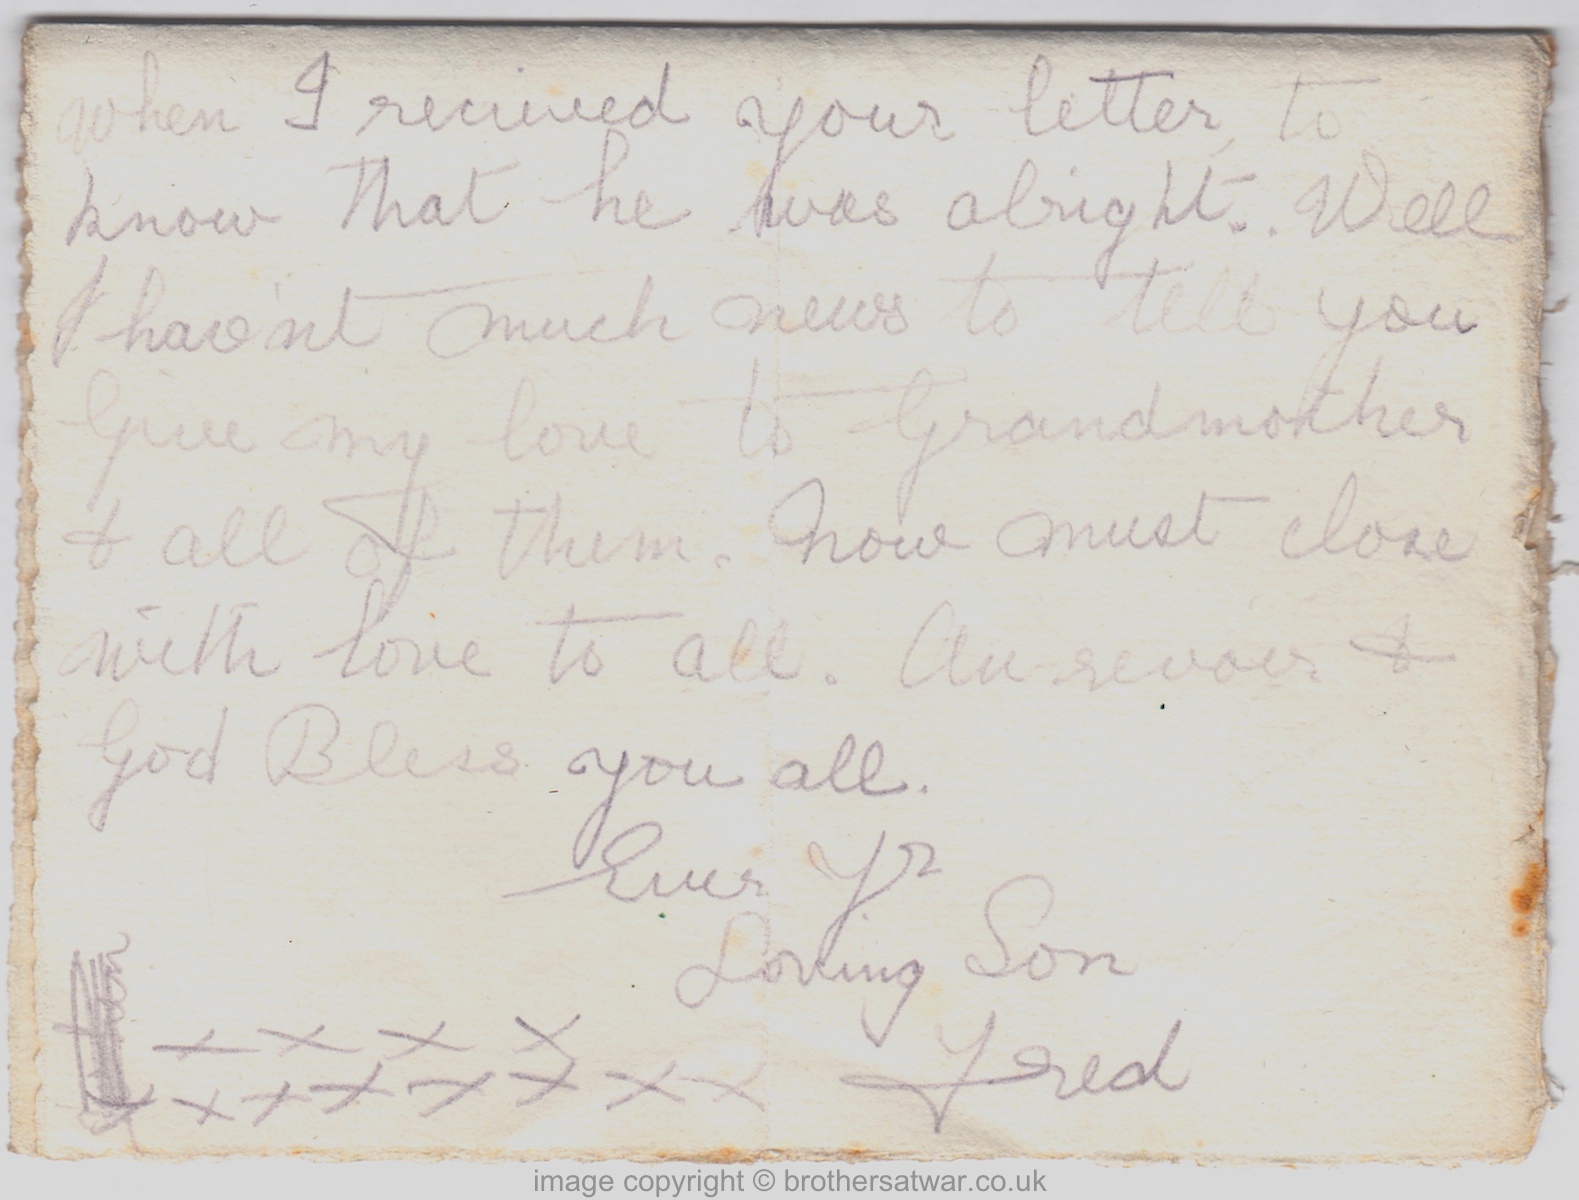 when I recieved your letter to
know that he was alright.. Well
I have'nt much news to tell you
Give my love to Grandmother
& all of them. Now must close
with love to all. Au-revoir &
God Bless you all.
Ever Yr
Loving Son
Fred
x x x x
x x x x x x x x
image copyright © brothersatwar.co.uk